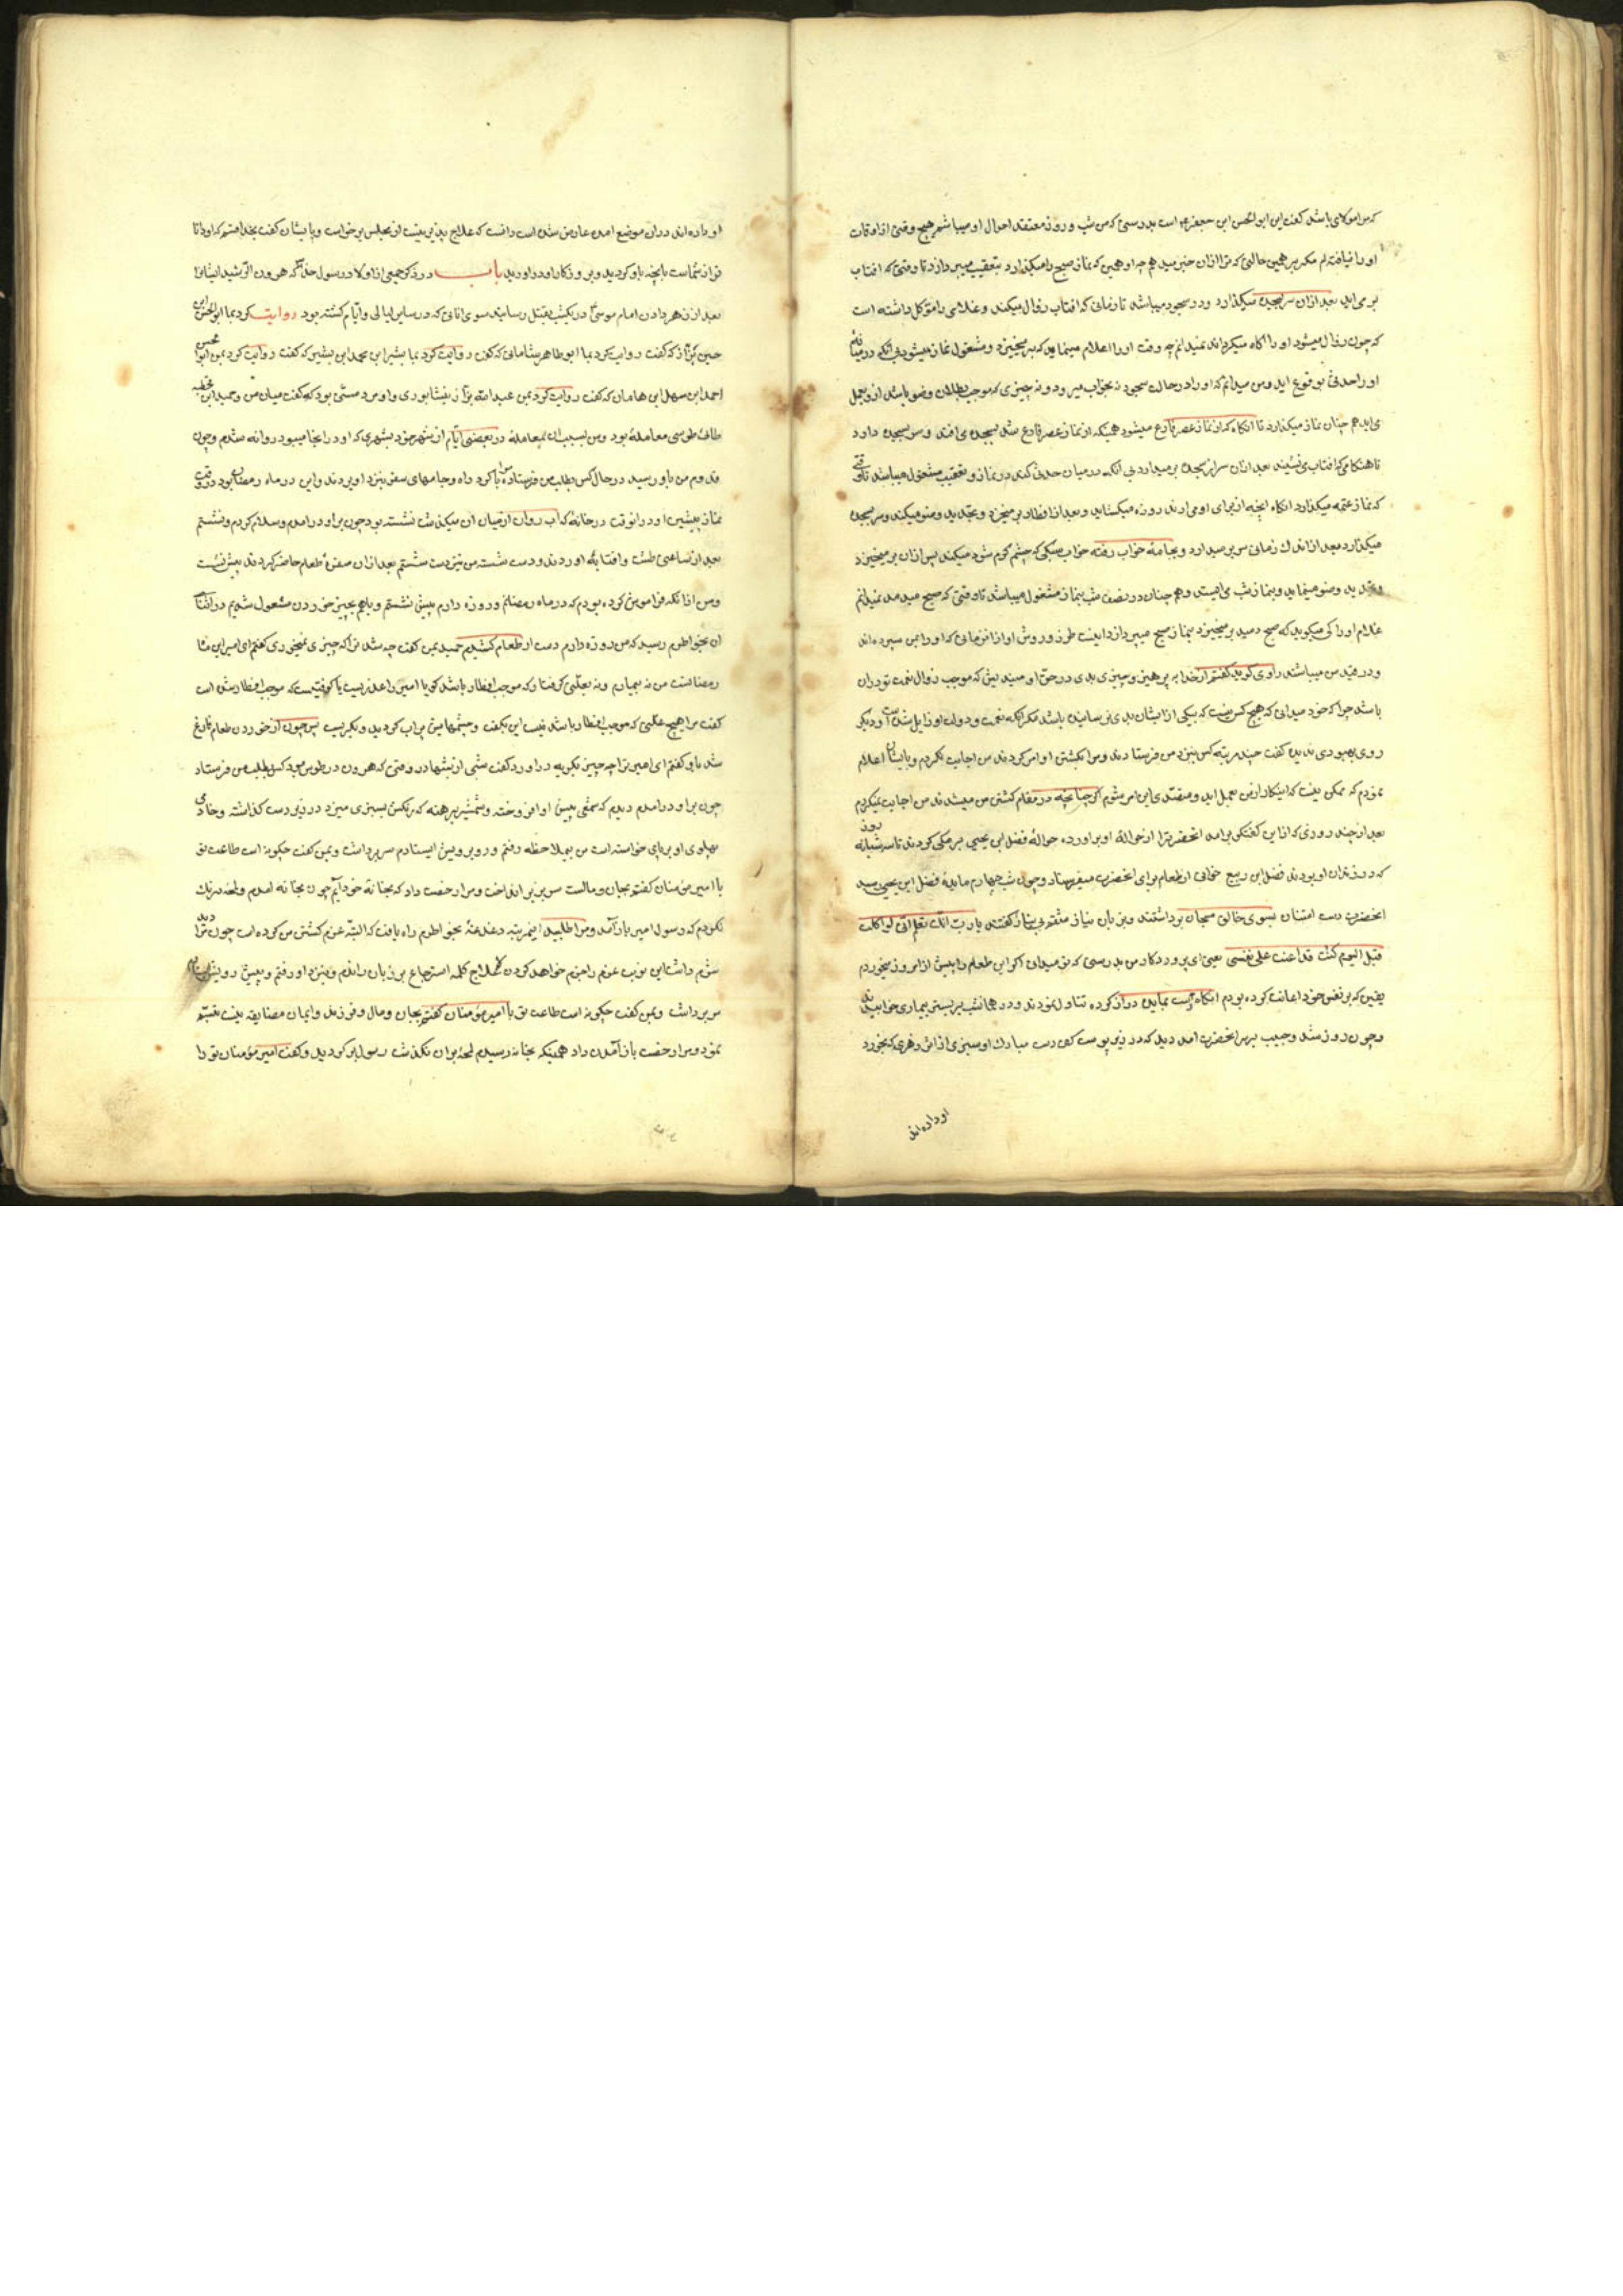 که من مولای باشد گفت این ابو الحسن ابن جعفر است بدرستی که من شب و روز معتقد احوال او میباشم هیچ وقتی از اوقات
او را نیافته ام مگر بر همین حالتی که ترا ازان خبر میدهم چرا و همین که نماز صبح را میگذارد بتعقیب میپردازد تا وقتی که افتاب
بر می اید بعد ازان سر بسجده میگذارد و در سجود میباشد تا زمانی که افتاب زوال میکند و غلامی را موکل داشته است
که چون زوال میشود او را اکاه میکرداند نمیدانم چه وقت او را اعلام مینماید که بر میخیزد و مشغول نماز میشود بی آنکه در میانه
او را حدثی بوقوع اید و من میدانم که او را در حالت سجود نه بخواب میرود و نه چیزی که موجب بطلان وضو باشد ازو بعمل
می اید هم چنان نماز میکذارد تا انکاه که از نماز عصر فارغ میشود همینکه از نماز عصر فارغ شد بسجده می افتد و سر بسجده دارد
تا هنکامی که افتاب می نشیند بعد ازان سر از سجده بر میدارد بی آنکه در میان حدثی کند در نماز و تعقیب مشغول میباشد تا وقتی
که نماز عتمه میکذارد انکاه انچه از برای او می ارند روزه میکشاید و بعد از افطار بر میخیزد و تجدید وضو میکند و سر بسجده
میکذارد بعد از اندک زمانی سر بر میدارد و بجامهٔ خواب رفته خواب سبکی که چشم کرم شود میکند پس ازان بر میخیزد
و تجدید وضو مینماید و بنماز شب می ایستد و هم چنان در نصف شب بنماز مشغول میباشد تا وقتی که صبح میدمد نمیدانم
غلام او را کی میکوید که صبح دمید بر میخیزد بنماز صبح میپردازد اینست طرز و روش او از ان زمانی که او را بمن سپرده اند
و در قید من میباشد راوی کوید کفتم از خدا بپرهیز و چیزی بدی در حق او میندیش که موجب زوال نعمت تو دران
باشد چرا که خود میدانی که هیچ کس نیست که بیکی از ایشان بدی رسانیده باشد مکر انکه نعمت و دولت او زایل شده و دیکر
روی بهبودی ندیده کفت چند مرتبه کس بنزد من فرستادند و مرا بکشتن او امر کردند من اجابت نکردم و بایشان اعلام
نمودم که ممکن نیست که اینکار از من بعمل اید و متصدی این امر شوم اکر چنانچه در مقام کشتن من میشدند من اجابت نمیکردم
بعد از چند روزی که از این کفتکو بر امد انحضرترا از حوالهٔ او بر اورده حوالهٔ فضل ابن یحیی برمکی کردند تا سه شبانه روز
که در زندان او بودند فضل ابن ربیع خوانی از طعام برای انحضرت میفرستاد و چون شب چهارم مایدهٔ فضل ابن یحیی رسید
انحضرت دست امتنان بسوی خالق سبحان برداشتند و بزبان نیاز کفتند یا رب انک تعلم انی لو اکلت
قبل الیوم کنت قد اعنت علی نفسی یعنی ای پروردکار من بدرستی که تو میدانی اکر این طعام را پیش از امروز میخوردم
یقین که بر نفس خود اعانت کرده بودم انکاه دست بمایده دراز کرده تناول نمودند و در همانشب بر بستر بیماری خوابیدند
و چون روز شد و طبیب بر سر انحضرت امد دید که در زیر پوست کف دست مبارک او سبزی از اثر زهری که بخورد
او داده اند
او داده اند دران موضع امده عارض شده است دانست که علاج پذیر نیست از مجلس بر خواست و بایشان کفت بخدا قسم که او دانا
تر از شماست بانچه باو کردید و بر روزکار او در اوردید باب در ذکر جمعی از اولاد رسول خدا که هرون الرشید ایشانرا
بعد از زهر دادن امام موسی در یکشب بقتل رسانید سوی انانی که در سایر لیالی و ایام کشته بود روایت کرد بما ابو الحسن ابن
حسین بزاز که کفت روایت کرد بما ابو طاهر شامانی که کفت روایت کرد بما بشر ابن محمد ابن بشیر که کفت روایت کرد بمن ابو الحسن
احمد ابن سهل ابن هامان که کفت روایت کرد بمن عبد الله بزاز نیشابوری و او مرد مسنی بود که کفت میان من و حمید ابن قحطبه
طائی طوسی معاملهٔ بود و من بسبب ان بمعاملهٔ در بعضی ایام از شهر خود بشهری که او در انجا میبود روانه شدم و چون
قدوم من باو رسید در حال کس بطلب من فرستاد مرا با کرد راه و جامهای سفر بنزد او بردند و این در ماه رمضان بود در وقت
نماز پیشین او در انوقت در خانهٔ که اب روان از میان ان میکذشت نشسته بود چون بر او در امدم و سلام کردم و نشستم
بعد از ساعتی طشت و افتابهٔ اوردند و دست شست من نیز دست شستم بعد ازان سفرهٔ طعام حاضر کردند پیش نشست
و من از انکه فراموش کرده بودم که در ماه رمضانم و روزه دارم پیش نشستم و باهم بچیز خوردن مشغول شدیم در اثنای
ان بخواطرم رسید که من روزه دارم دست از طعام کشیدم حمید بمن کفت چه شد ترا که چیزی نمیخوری کفتم ای امیر این ماه
رمضانست من نه بیمارم و نه بعلتی کرفتار که موجب افطار باشد کویا امیر را عذریست یا کوفتیست که موجب افطارش است
کفت مرا هیچ علتی که موجب افطار باشد نیست این بکفت و چشمهایش پر اب کردید و بکریست پس چون از خوردن طعام فارغ
شد باو کفتم ای امیر ترا چه چیز بکریه در اورد کفت شبی از شبها در وقتی که هرون در طوس بود کس بطلب من فرستاد
چون بر او در امدم دیدم که شمعی پیش او افروخته و شمشیر برهنه که رنکش بسبزی میزد در زیر دست کذاشته و خادمی
پهلوی او بر پای خواسته است من بملاحظه رفتم و روبرویش ایستادم سر برداشت و بمن کفت چکونه است طاعت تو
با امیر مؤمنان کفتم بجان و مالست سر بزیر انداخت و مرا رخصت داد که بخانهٔ خود ایم چون بخانه امدم و لحظه درنک
نکردم که رسول امیر باز آمد و مرا طلبید اینمرتبه دغدغهٔ بخواطرم راه یافت که البته عزم کشتن من کرده است چون مرا دید
شرم داشت این نوبت عزم را جزم خواهد کردن لاعلاج کلمه استرجاع بر زبان راندم و بنزد او رفتم و پیش رویش ایستادم
سر برداشت و بمن کفت چکونه است طاعت تو با امیر مؤمنان کفتم بجان و مال و فرزند و ایمان مضایقه نیست تبسم
نمود و مرا رخصت باز آمدن داد همینکه بخانه رسیدم لحظهٔ بران نکذشت رسول بر کردید و کفت امیر مؤمنان تو را